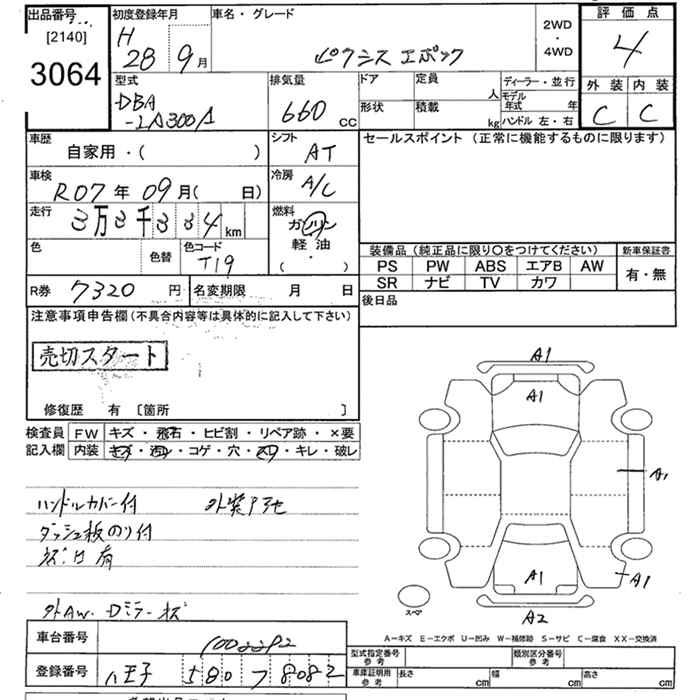 出品番号 初度登録年月 車名・グレード 2WD・4WD 評価点
[2140] H 28 9月 ピクシス エポック 4
3064
型式 排気量 ドア 定員 人 ディーラー・並行 外装 内装
DBA 660 cc 形状 積載 kg モデル年式 年 C C
-LA300A ハンドル 左・右
車歴 シフト セールスポイント (正常に機能するものに限ります)
自家用・( ) AT
車検 冷房
R07年 09月( 日) A/C
走行 燃料
3万3千334 km ガソリン
色 色替 色コード 軽油
T19 ・( )
装備品 (純正品に限り〇をつけてください) 新車保証書
PS PW ABS エアB AW 有・無
SR ナビ TV カワ
R券 7320円 名変期限 月 日 後日品
注意事項申告欄 (不具合内容等は具体的に記入して下さい)
売切スタート
修復歴 有 [箇所 ]
検査員 FW キズ・飛石・ヒビ割・リペア跡・×要
記入欄 内装 キズ・汚レ・コゲ・穴・スレ・キレ・破レ
A1
A1
A1
A1
A1
A2
スペア
ハンドルカバー付
ダッシュ板のり付
外AW. Dミラーキズ
A-キズ E-エクボ U-凹み W-補修跡 S-サビ C-腐食 XX-交換済
車台番号 1002292
登録番号 八王子 580 フ 8082
型式指定番号 参考 類別区分番号 参考
車庫証明用 参考 長さ cm 幅 cm 高さ cm